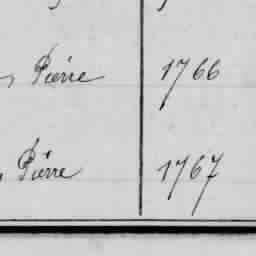 , Pierre 1766
, Pierre 1767